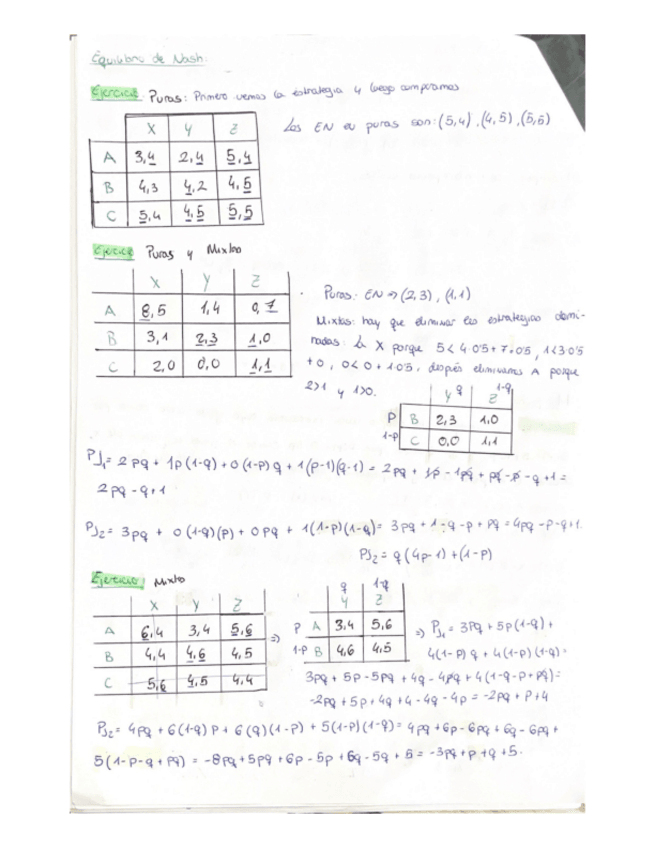 Equilibrio de Nash:
Ejercicio Puras: Primero vemos la estrategia y luego comparamos
X Y Z
Los EN en puras son: (5,4), (4,5), (5,5)
A 3,4 2,4 5,4
B 4,3 4,2 4,5
C 5,4 4,5 5,5
Ejercicio Puras y Mixtas
X Y Z
Puras: EN => (2,3), (1,1)
A 8,5 1,4 0,7
Mixtas: hay que eliminar las estrategias domi-
B 3,1 2,3 1,0
nadas: La X porque 5<4·0'5+7·0'5, 1<3·0'5
C 2,0 0,0 1,1
+0, 0<0+1·0'5, después eliminamos A porque
2>1 y 1>0.
q 1-q
Y Z
P B 2,3 1,0
1-P C 0,0 1,1
PJ1= 2pq + 1p(1-q) + 0(1-p)q + 1(p-1)(q-1) = 2pq + 1p - 1pq + pq - p - q + 1 =
2pq - q + 1
PJ2 = 3pq + 0(1-q)(p) + 0pq + 1(1-p)(1-q) = 3pq + 1 - q - p + pq = 4pq - p - q + 1.
PJ2 = q(4p-1) + (1-p)
Ejercicio Mixto
q 1-q
X Y Z
Y Z
A 6,4 3,4 5,6 =>
P A 3,4 5,6 => PJ1 = 3pq + 5p(1-q) +
B 4,4 4,6 4,5
1-P B 4,6 4,5
4(1-p)q + 4(1-p)(1-q) =
C 5,6 4,5 4,4
3pq + 5p - 5pq + 4q - 4pq + 4(1-q-p+pq) =
-2pq + 5p + 4q + 4 - 4q - 4p = -2pq + p + 4
PJ2 = 4pq + 6(1-q)p + 6(q)(1-p) + 5(1-p)(1-q) = 4pq + 6p - 6pq + 6q - 6pq +
5(1-p-q+pq) = -8pq + 5pq + 6p - 5p + 6q - 5q + 5 = -3pq + p + q + 5.